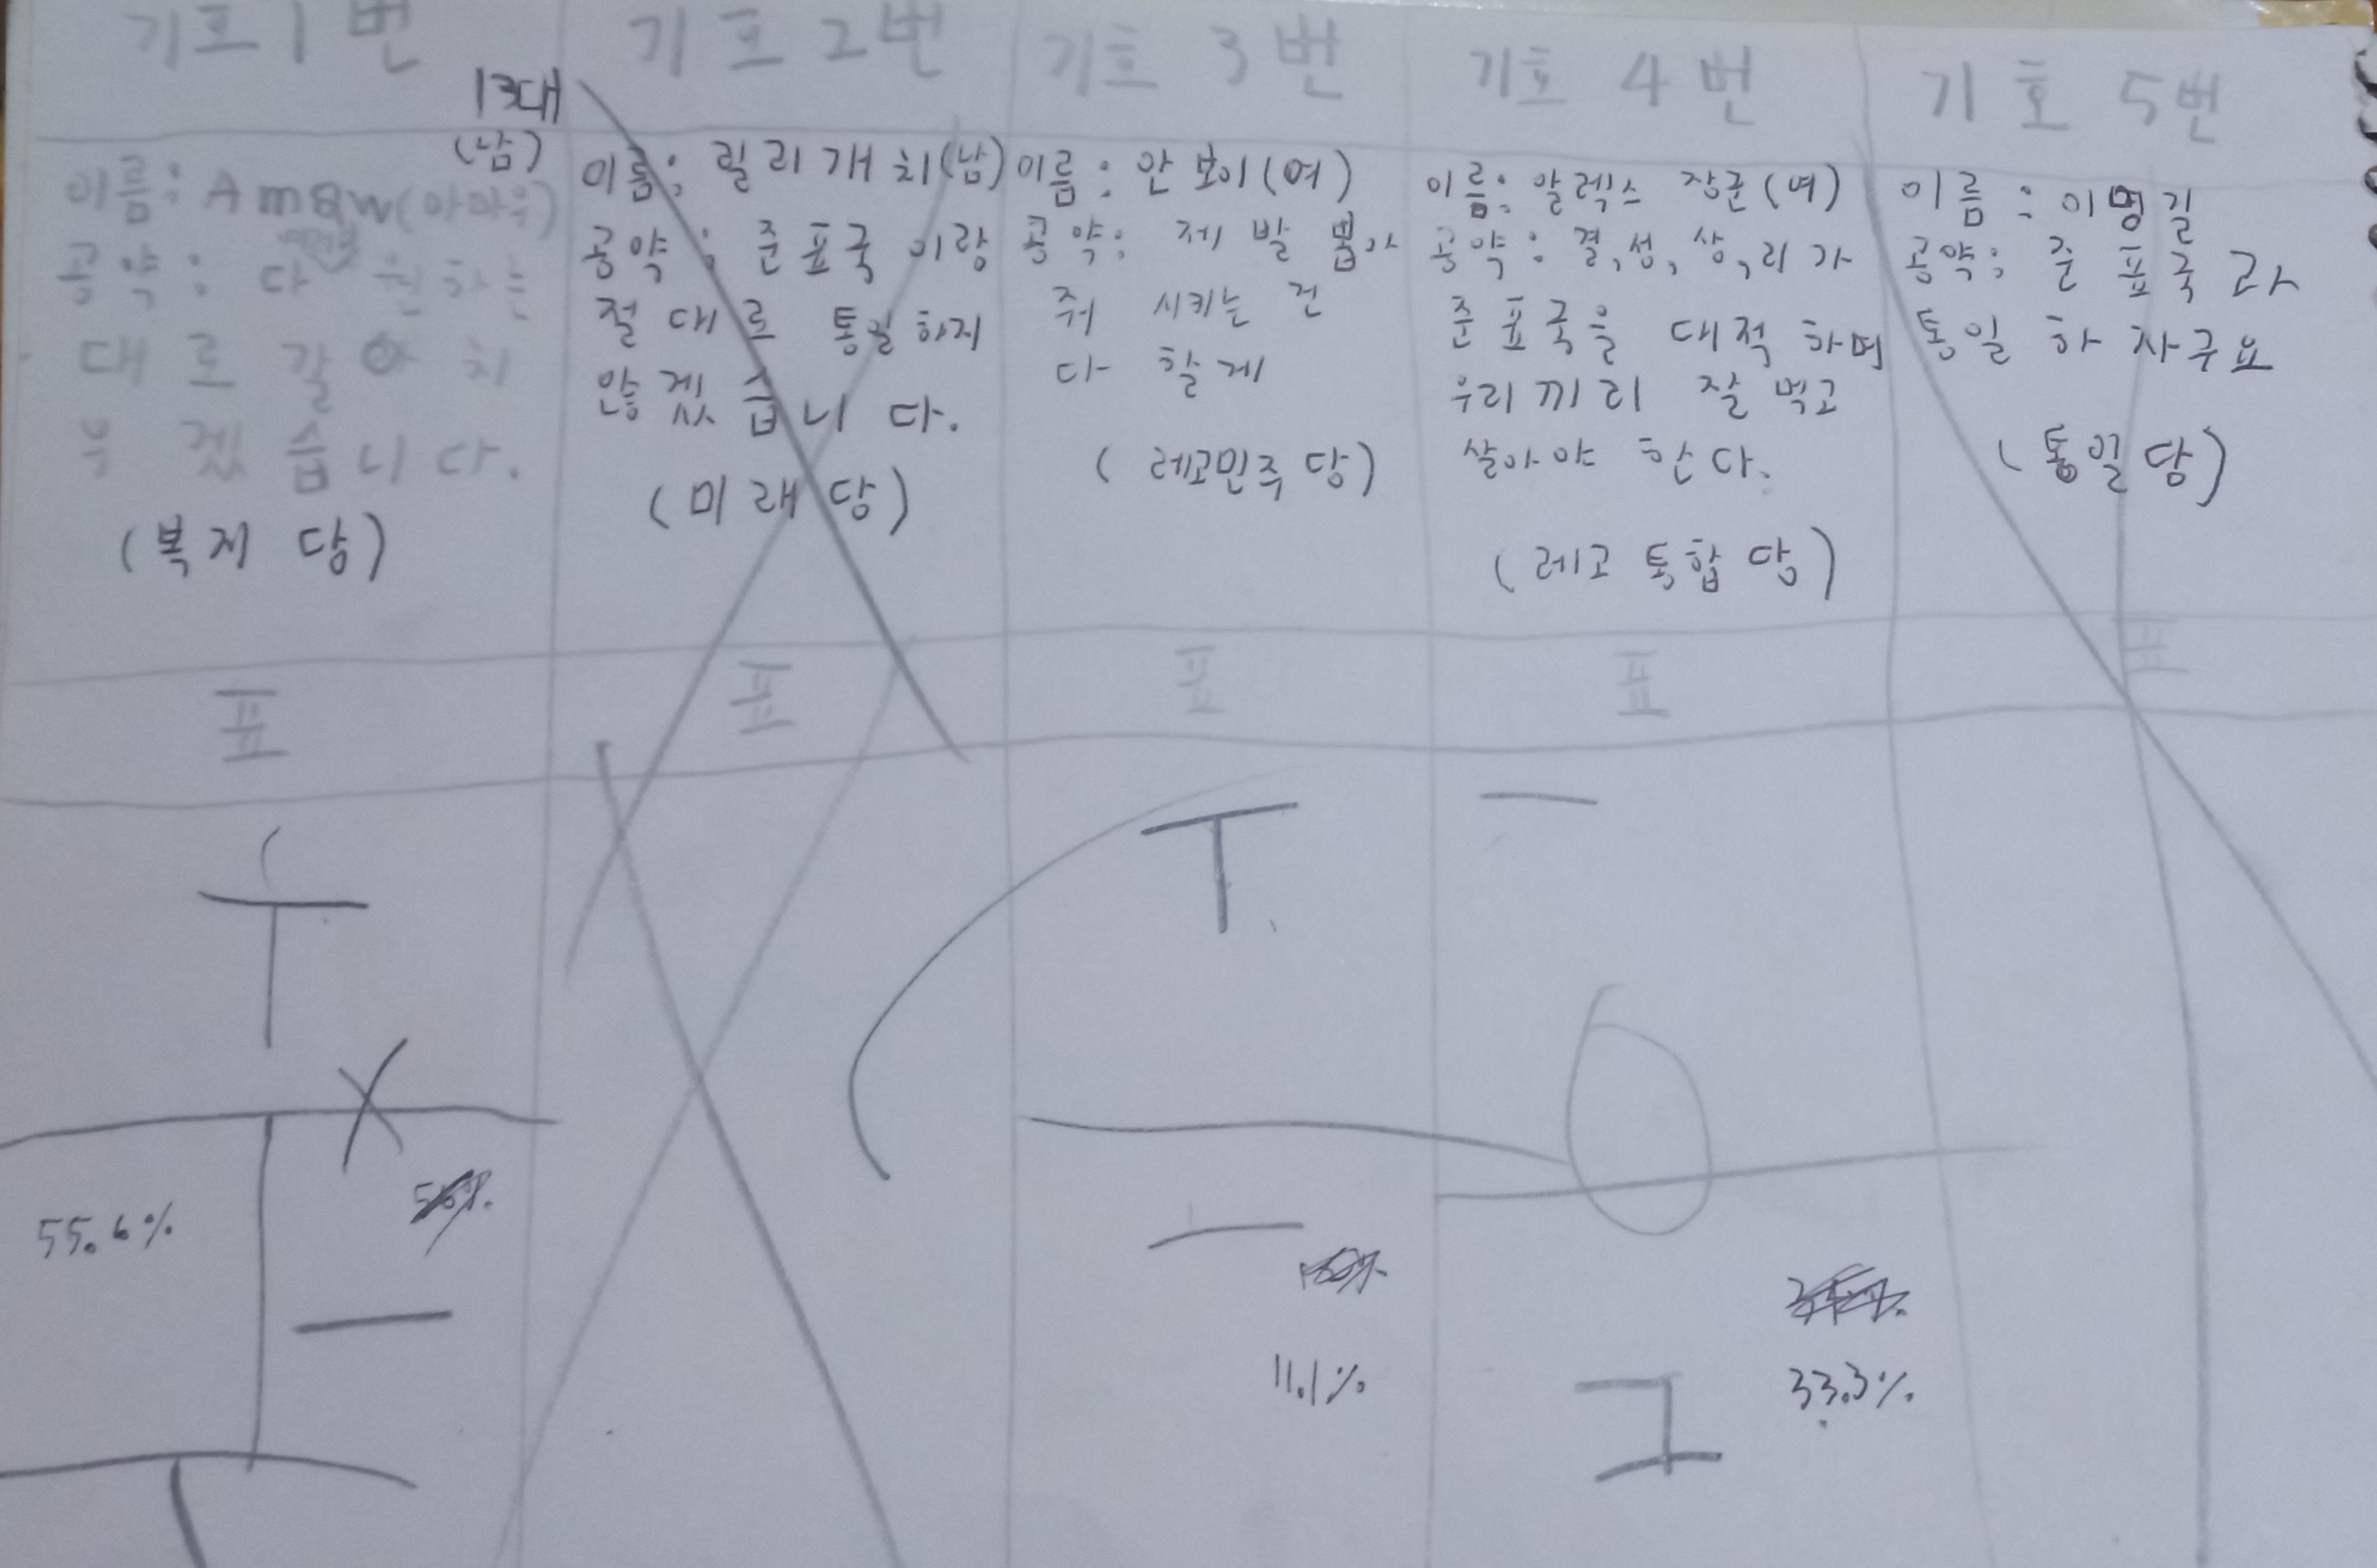 기호 1번
13대
(남)
이름: Amaw(아마우)
공약: 다 원하는
대로 갈아 치
우겠습니다.
(복지당)
표
55.6%
기호 2번
이름: 릴리개치(남)
공약: 준표국이랑
절대로 통일하지
않겠습니다.
(미래당)
표
기호 3번
이름: 안뽀이(여)
공약: 제발 뽑아
줘 시키는 건
다 할게
(레고민주당)
표
11.1%
기호 4번
이름: 알렉스 장군(여)
공약: 결,성,상,리가
준표국을 대적하며
우리끼리 잘 먹고
살아야 한다.
(레고통합당)
표
33.3%
기호 5번
이름: 이명길
공약: 준표국과
통일하자구요
(통일당)
표